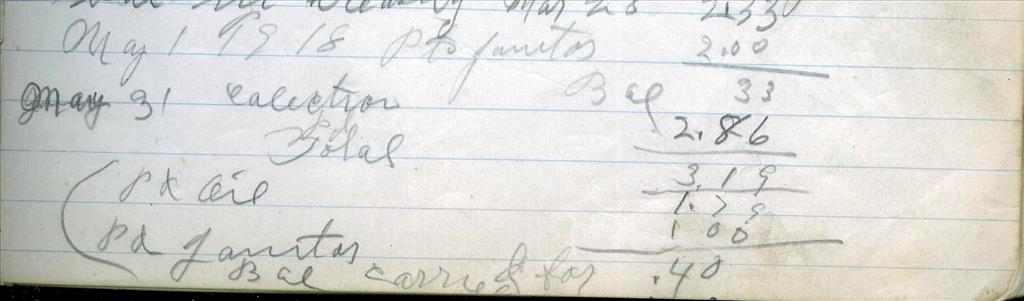 Treasury Mar 28 2.33
May 1 1918 Pd Janitor 2.00
Bal 33
May 31 Colection 2.86
Total 3.19
Pd Oil 1.79
Pd Janitor 1 00
Bal carried for .40